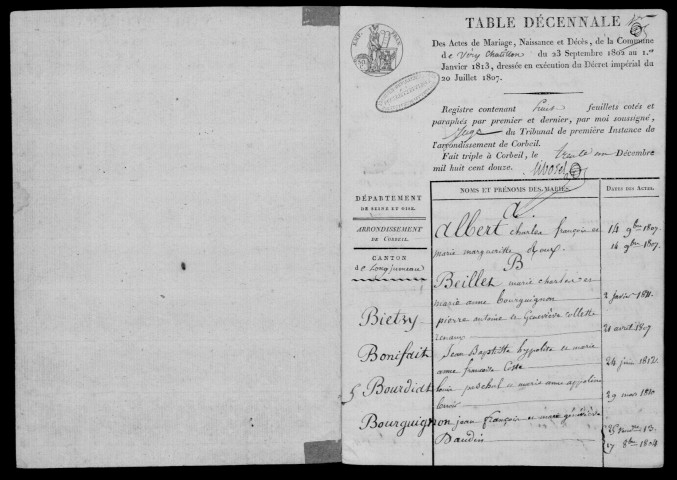 TABLE DÉCENNALE
Des Actes de Mariage, Naissance et Décès, de la Commune
de Viry Chatillon du 23 Septembre 1802 au 1.er
Janvier 1813, dressée en exécution du Décret impérial du
20 Juillet 1807.
Registre contenant huit feuillets cotés et
paraphés par premier et dernier, par moi soussigné,
Juge du Tribunal de première Instance de
l'arrondissement de Corbeil.
Fait triple à Corbeil, le trente un Décembre
mil huit cent douze.
DÉPARTEMENT
DE SEINE ET OISE.
ARRONDISSEMENT
DE CORBEIL.
CANTON
de Longjumeau
NOMS ET PRÉNOMS DES MARIÉS. DATES DES ACTES.
A.
Albert charles françois et 14 9bre 1807.
marie margueritte Roux. 14 9bre 1807.
B
Beilles marie charles et
marie anne bourguignon 2 janvier 1811.
Bietry pierre antoine et Geneviève collette
21 avril 1807
Bonifdit Jean Baptiste hypolite et marie
anne françoise Coste 24 juin 1812.
Bourdidt louis paschal et marie anne appoline
29 mars 1810
Bourguignon jean françois et marie geneviève
Baudin 17 8bre 1804